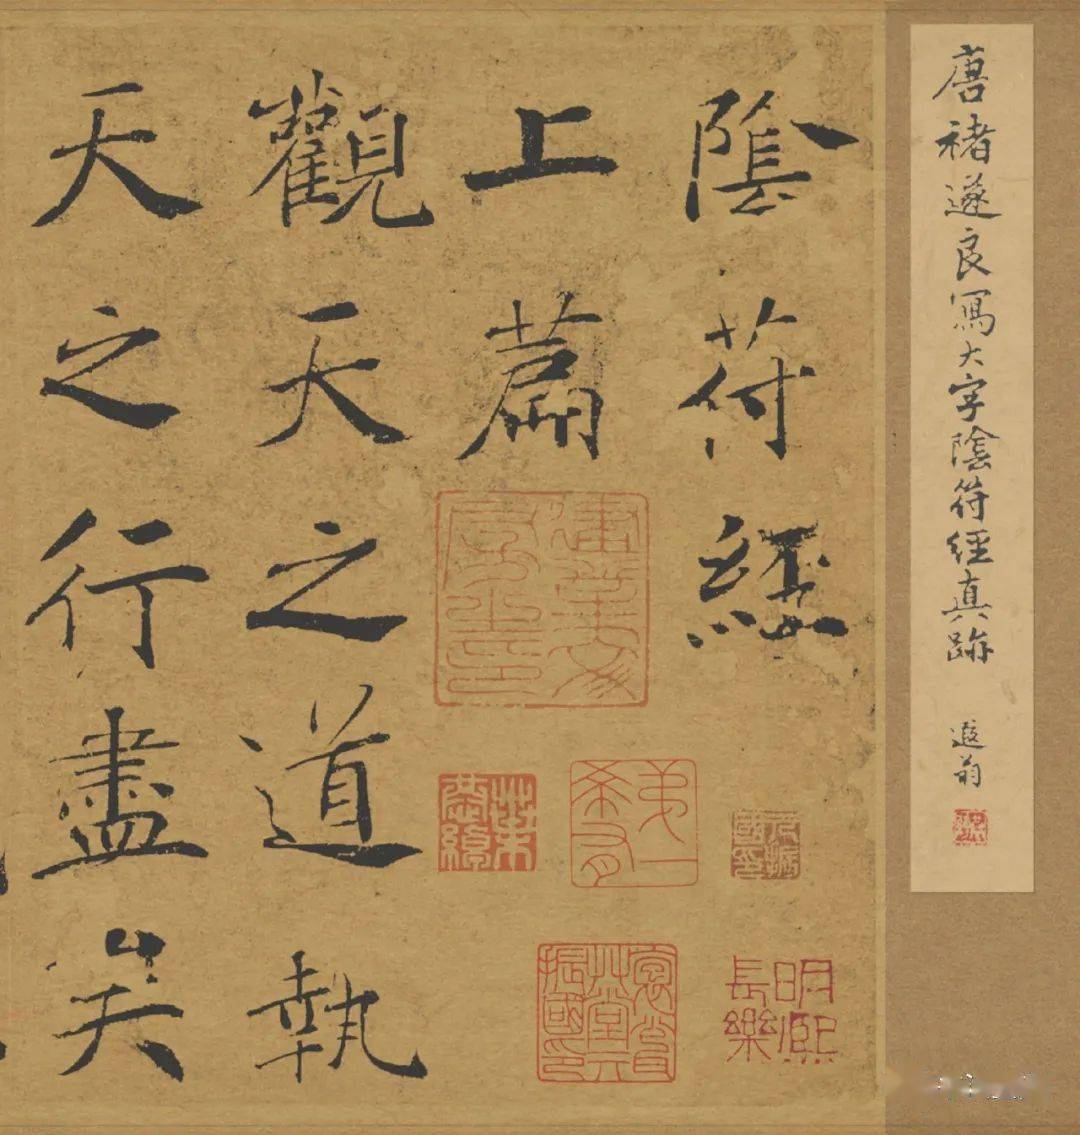 唐褚遂良寫大字陰符經真跡
遐翁
陰符經
上篇
觀天之道執
天之行盡矣
建業文房之印